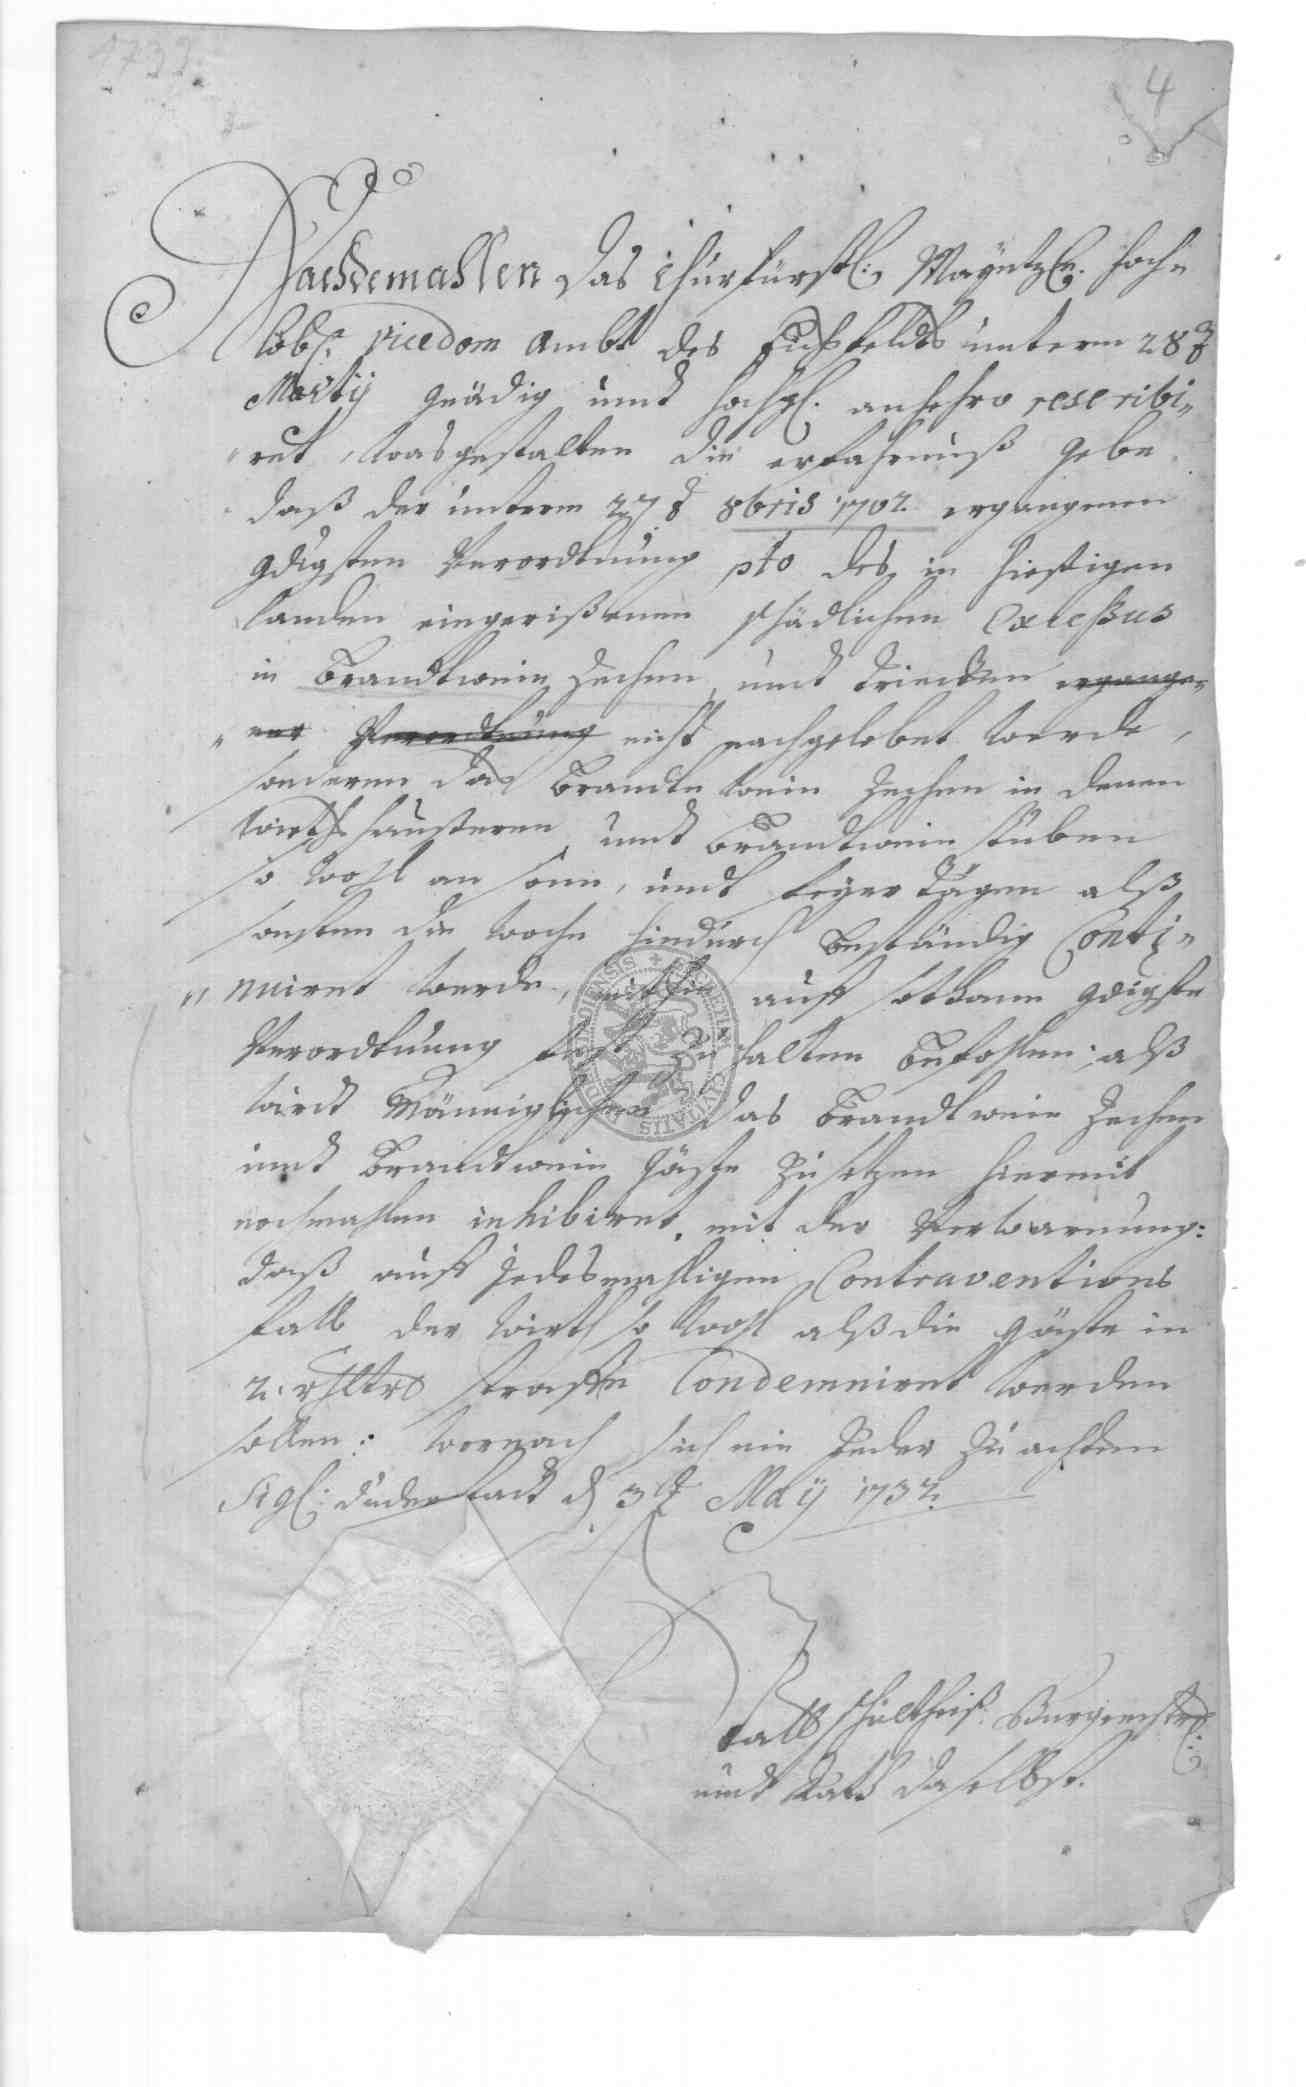 1732
4
Nachdemahlen das Churfürstl: Mayntzl. hoch-
löbl. Vicedom Ambt des Eichsfeldts unterm 28t
Martij gnädig undt hochgl. anhero rescribi-
ret, wasgestalten die erfahrnuß gebe
daß der unterm 27t 8bris 1702 ergangenen
gdigsten Verordtnung pto des in hiesigen
landen eingerißenen schädlichen Excessus
in Brandtwein Zechen, undt drincken ergange-
ner Verordtnung nicht nachgelebet werde,
sonderen das Brandtwein Zechen in denen
wirthshäusteren, undt Brandtwein stuben
so wohl an Sonn, undt feyer tägen alß
sonsten die woche hindurch beständig Conti-
nuiret werde, mithin auff sothane gdigste
Verordtnung fest zu halten befohlen; alß
wirdt Männiglichen das Brandtwein Zechen
undt Brandtwein Gäste zu setzen hiermit
nochmahlen inhibiret, mit der Verwarnung:
daß auff jedesmahligen Contraventions
fall der wirth so wohl alß die gäste in
2. rthlr straffe Condemniret werden
sollen: wornach sich ein Jeder zu achten
Sigl: Duderstadt d 3t Maij 1732.
Stadtschultheiß Burgermstr:
undt Rath daselbst.
SECRETUM CIVITATIS